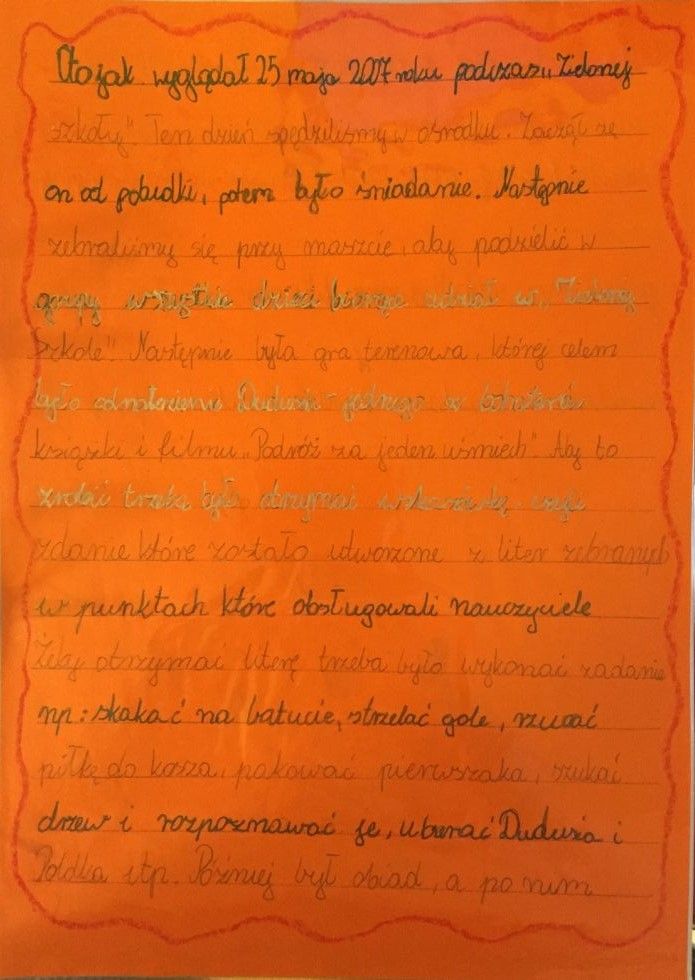 Oto jak wyglądał 25 maja 2007 roku podczas „Zielonej
szkoły". Ten dzień spędziliśmy w ośrodku. Zaczął się
on od pobudki, potem było śniadanie. Następnie
zebraliśmy się przy maszcie, aby podzielić w
grupy wszystkie dzieci biorące udział w „Zielonej
Szkole". Następnie była gra terenowa, której celem
było odnalezienie Dudusia - jednego z bohaterów
książki i filmu „Podróż za jeden uśmiech". Aby to
zrobić trzeba było otrzymać wskazówkę, czyli
zdanie które zostało utworzone z liter zebranych
w punktach które obsługowali nauczyciele
Żeby otrzymać literę trzeba było wykonać zadanie
np: skakać na batucie, strzelać gole, rzucać
piłkę do kosza, pakować pierwszaka, szukać
drzew i rozpoznawać je, ubierać Dudusia i
Poldka itp. Później był obiad, a po nim